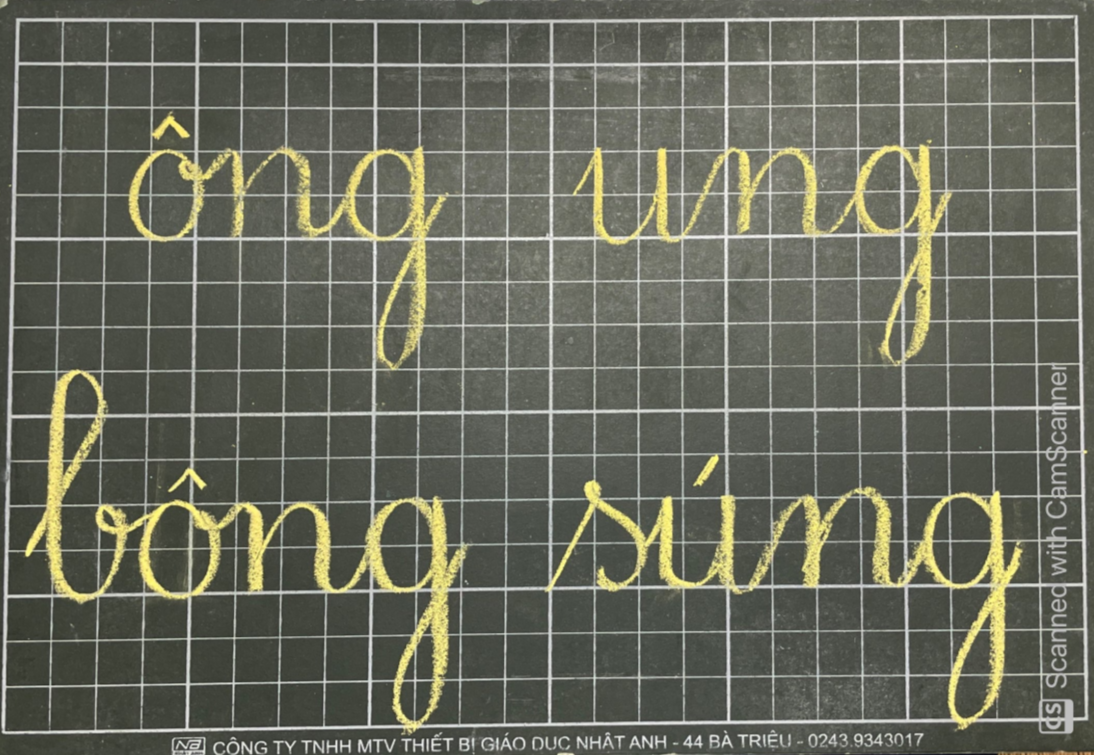 ông ung
bông súng
CÔNG TY TNHH MTV THIẾT BỊ GIÁO DỤC NHẬT ANH - 44 BÀ TRIỆU - 0243.9343017
CS Scanned with CamScanner